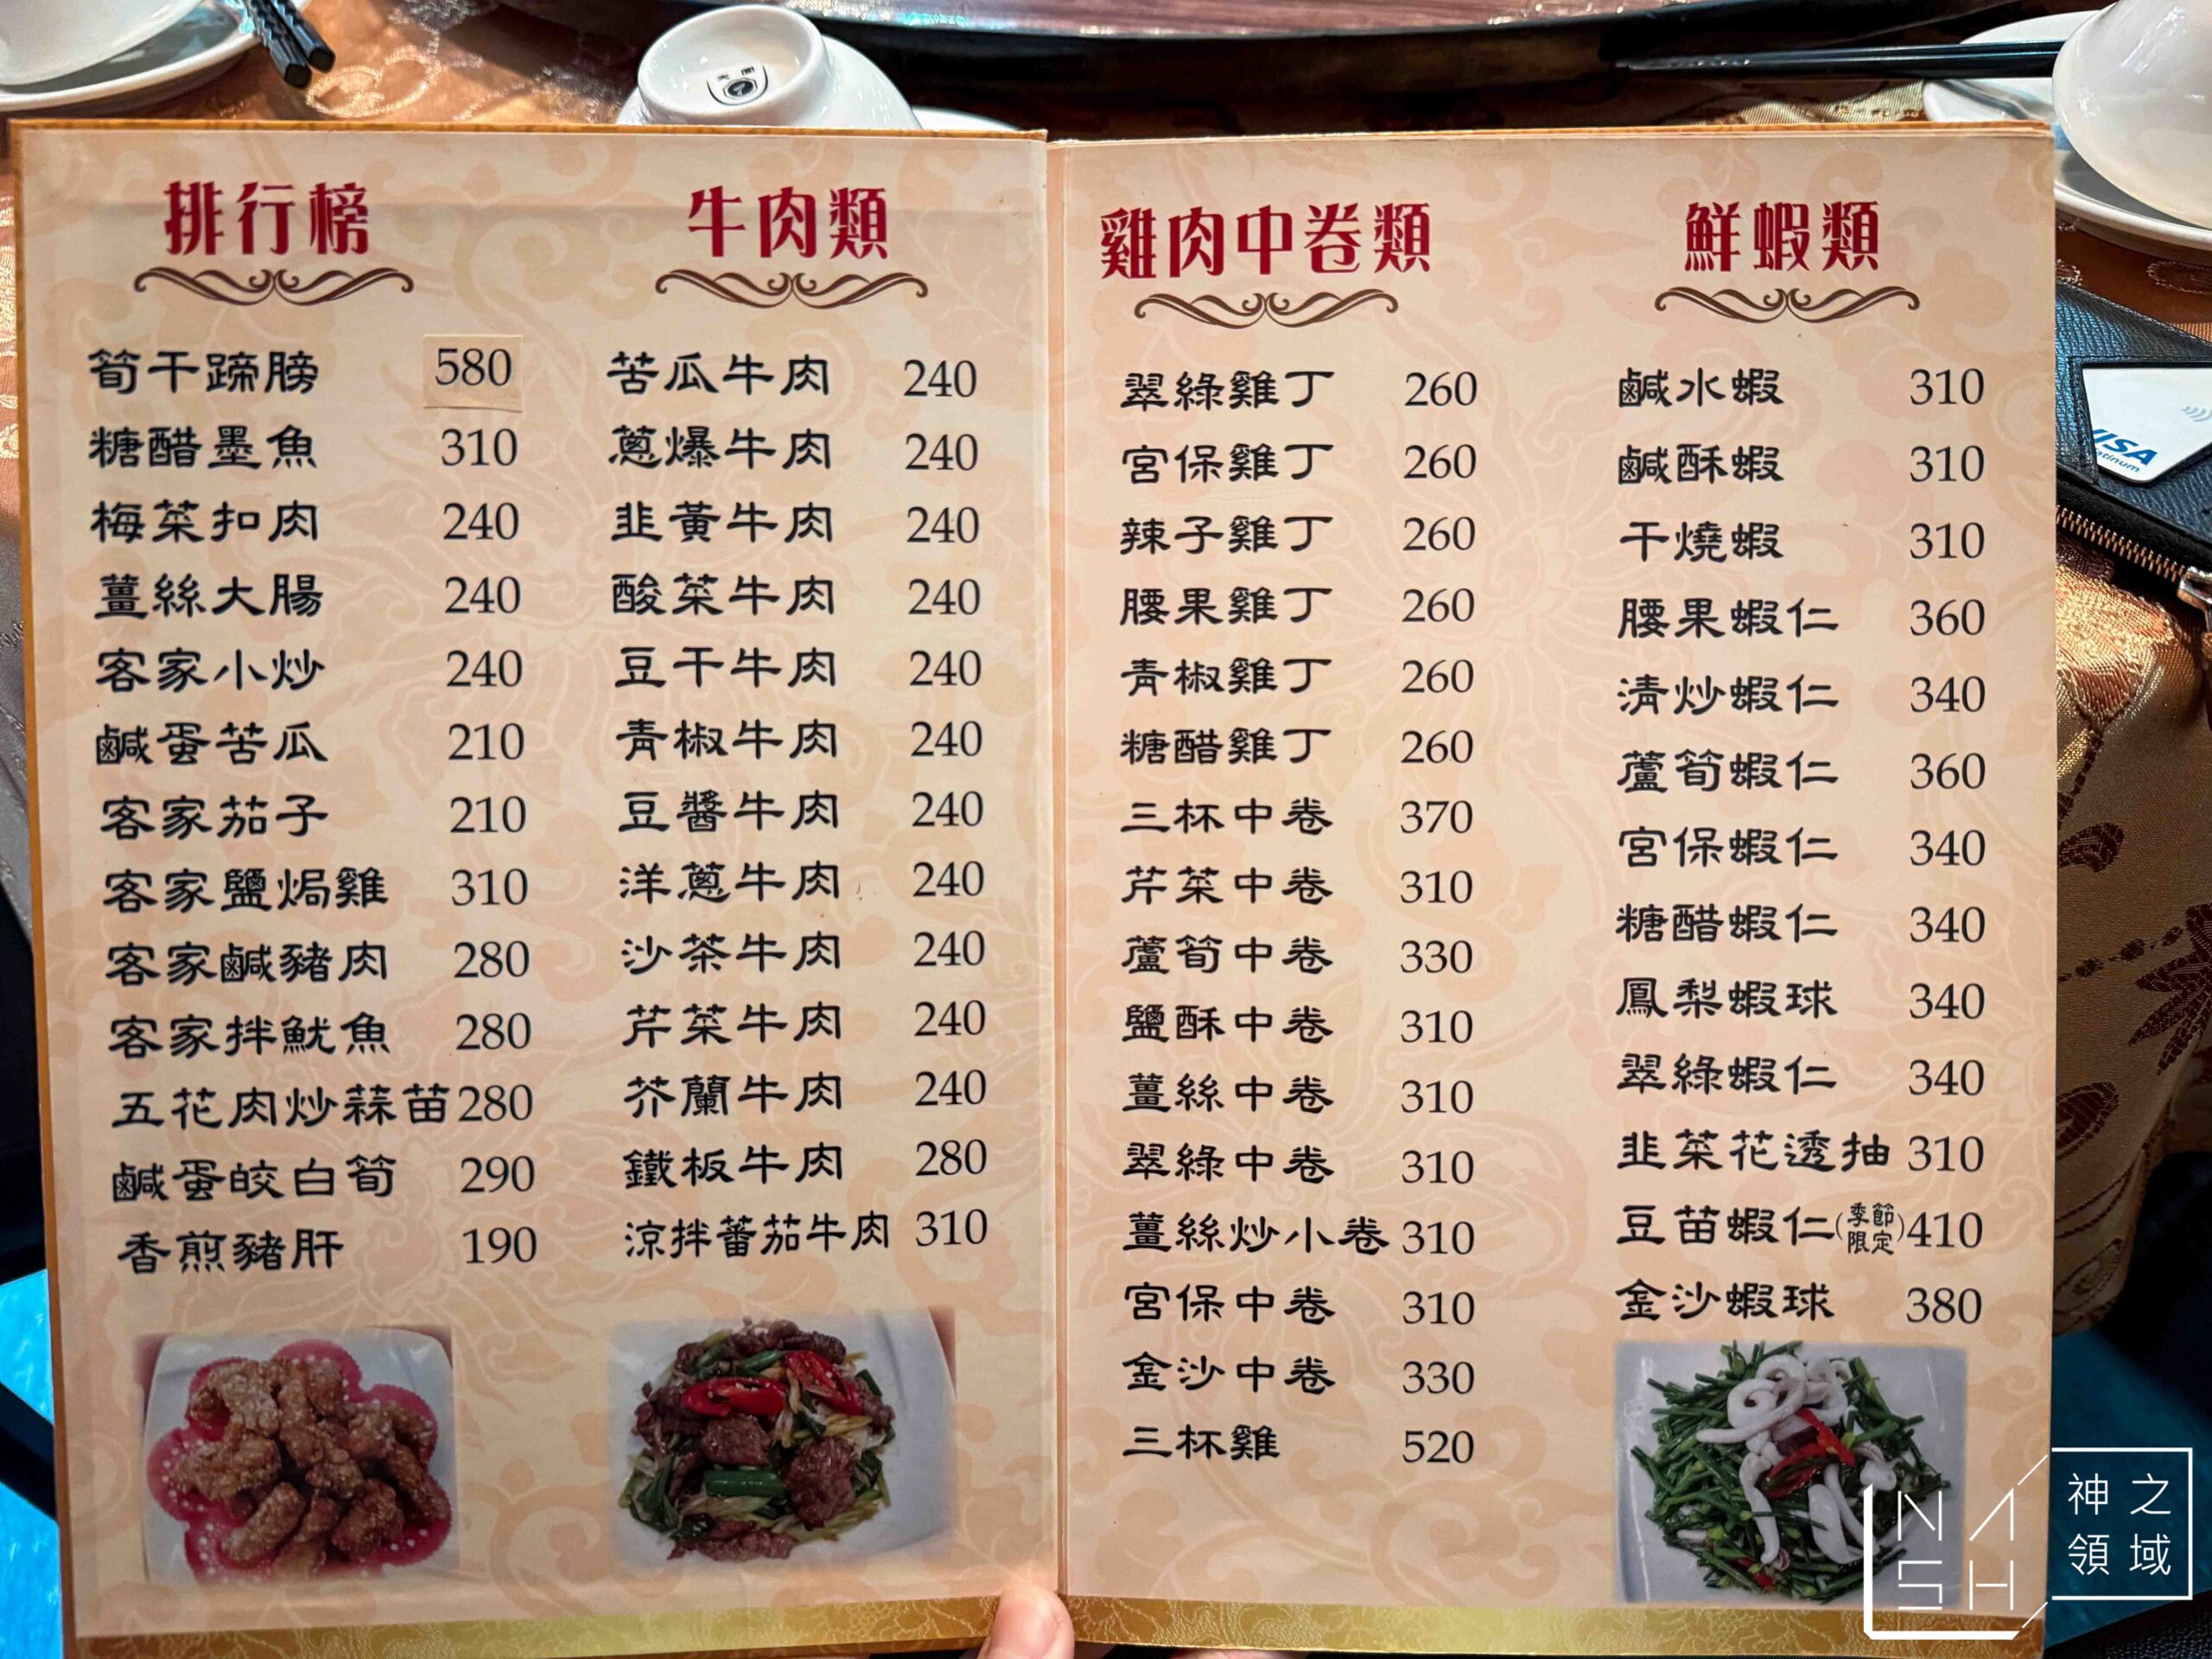 排行榜
筍干蹄膀 580
糖醋墨魚 310
梅菜扣肉 240
薑絲大腸 240
客家小炒 240
鹹蛋苦瓜 210
客家茄子 210
客家鹽焗雞 310
客家鹹豬肉 280
客家拌魷魚 280
五花肉炒蒜苗 280
鹹蛋皎白筍 290
香煎豬肝 190
牛肉類
苦瓜牛肉 240
蔥爆牛肉 240
韭黃牛肉 240
酸菜牛肉 240
豆干牛肉 240
青椒牛肉 240
豆醬牛肉 240
洋蔥牛肉 240
沙茶牛肉 240
芹菜牛肉 240
芥蘭牛肉 240
鐵板牛肉 280
涼拌蕃茄牛肉 310
雞肉中卷類
翠綠雞丁 260
宮保雞丁 260
辣子雞丁 260
腰果雞丁 260
青椒雞丁 260
糖醋雞丁 260
三杯中卷 370
芹菜中卷 310
蘆筍中卷 330
鹽酥中卷 310
薑絲中卷 310
翠綠中卷 310
薑絲炒小卷 310
宮保中卷 310
金沙中卷 330
三杯雞 520
鮮蝦類
鹹水蝦 310
鹹酥蝦 310
干燒蝦 310
腰果蝦仁 360
清炒蝦仁 340
蘆筍蝦仁 360
宮保蝦仁 340
糖醋蝦仁 340
鳳梨蝦球 340
翠綠蝦仁 340
韭菜花透抽 310
豆苗蝦仁(季節限定) 410
金沙蝦球 380
VISA
NASH
神之
領域